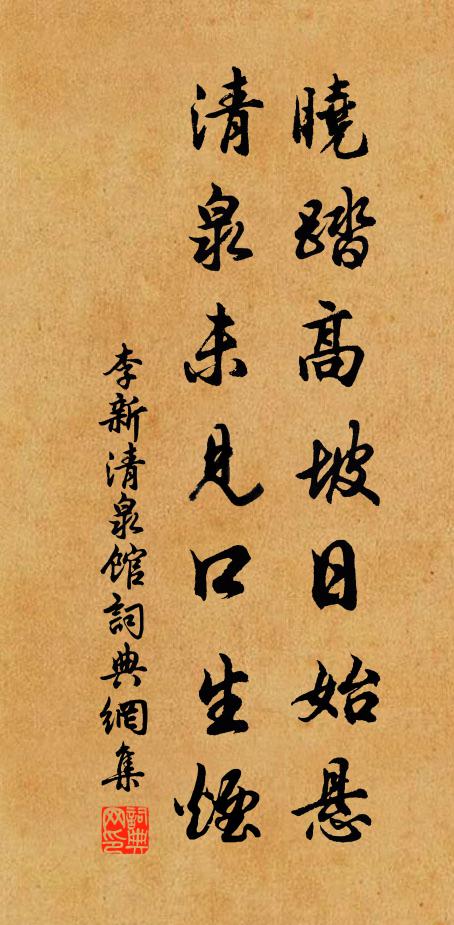 曉踏高坡日始悬
清泉未見口生煙
李新清泉馆詞典網集
詞典网印